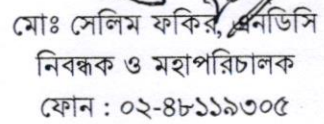 মোঃ সেলিম ফকির, এনডিসি
নিবন্ধক ও মহাপরিচালক
ফোন : ০২-৪৮১১৯৩০৫